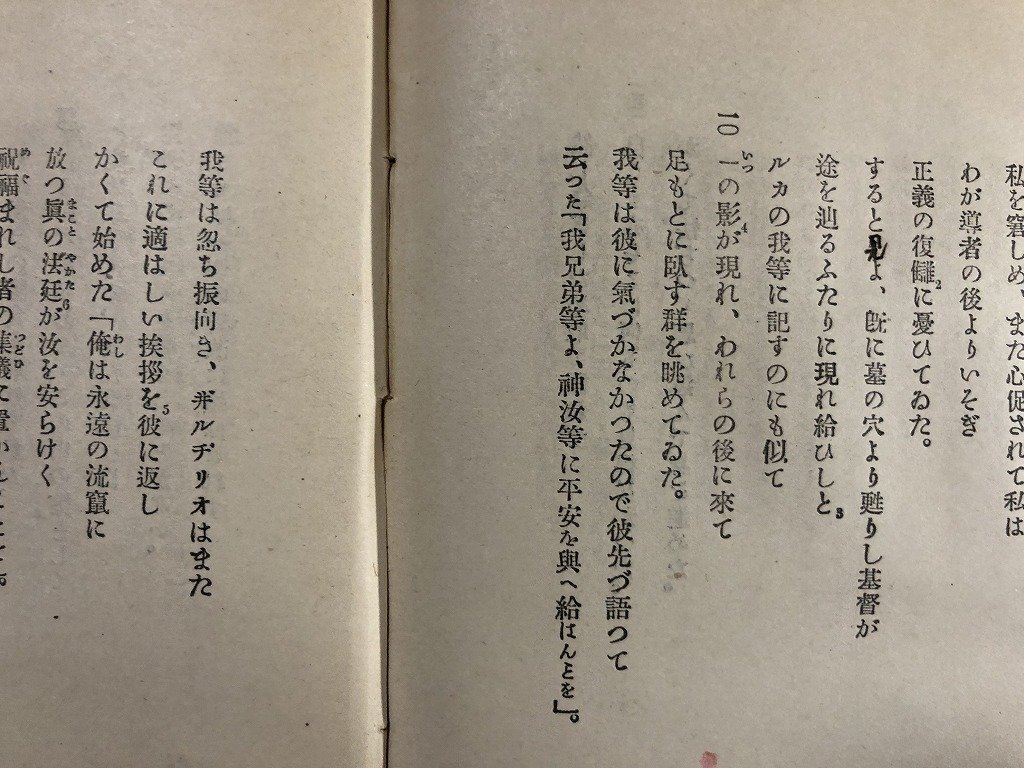 私を窘しめ、また心促されて私は
わが導者の後よりいそぎ
正義の復讎2に憂ひてゐた。
すると見よ、既に墓の穴より甦りし基督が
途を辿るふたりに現れ給ひしと3
ルカの我等に記すのにも似て
一〇 一の影4が現れ、われらの後に來て
足もとに臥す群を眺めてゐた。
我等は彼に氣づかなかつたので彼先づ語つて
云つた「我兄弟等よ、神汝等に平安を與へ給はんことを」。
我等は忽ち振向き、ヰルヂリオはまた
これに適はしい挨拶5を彼に返し
かくて始めた「俺は永遠の流竄に
放つ眞の法廷6が汝を安らけく
祝福まれし者の集議に置かんことを。